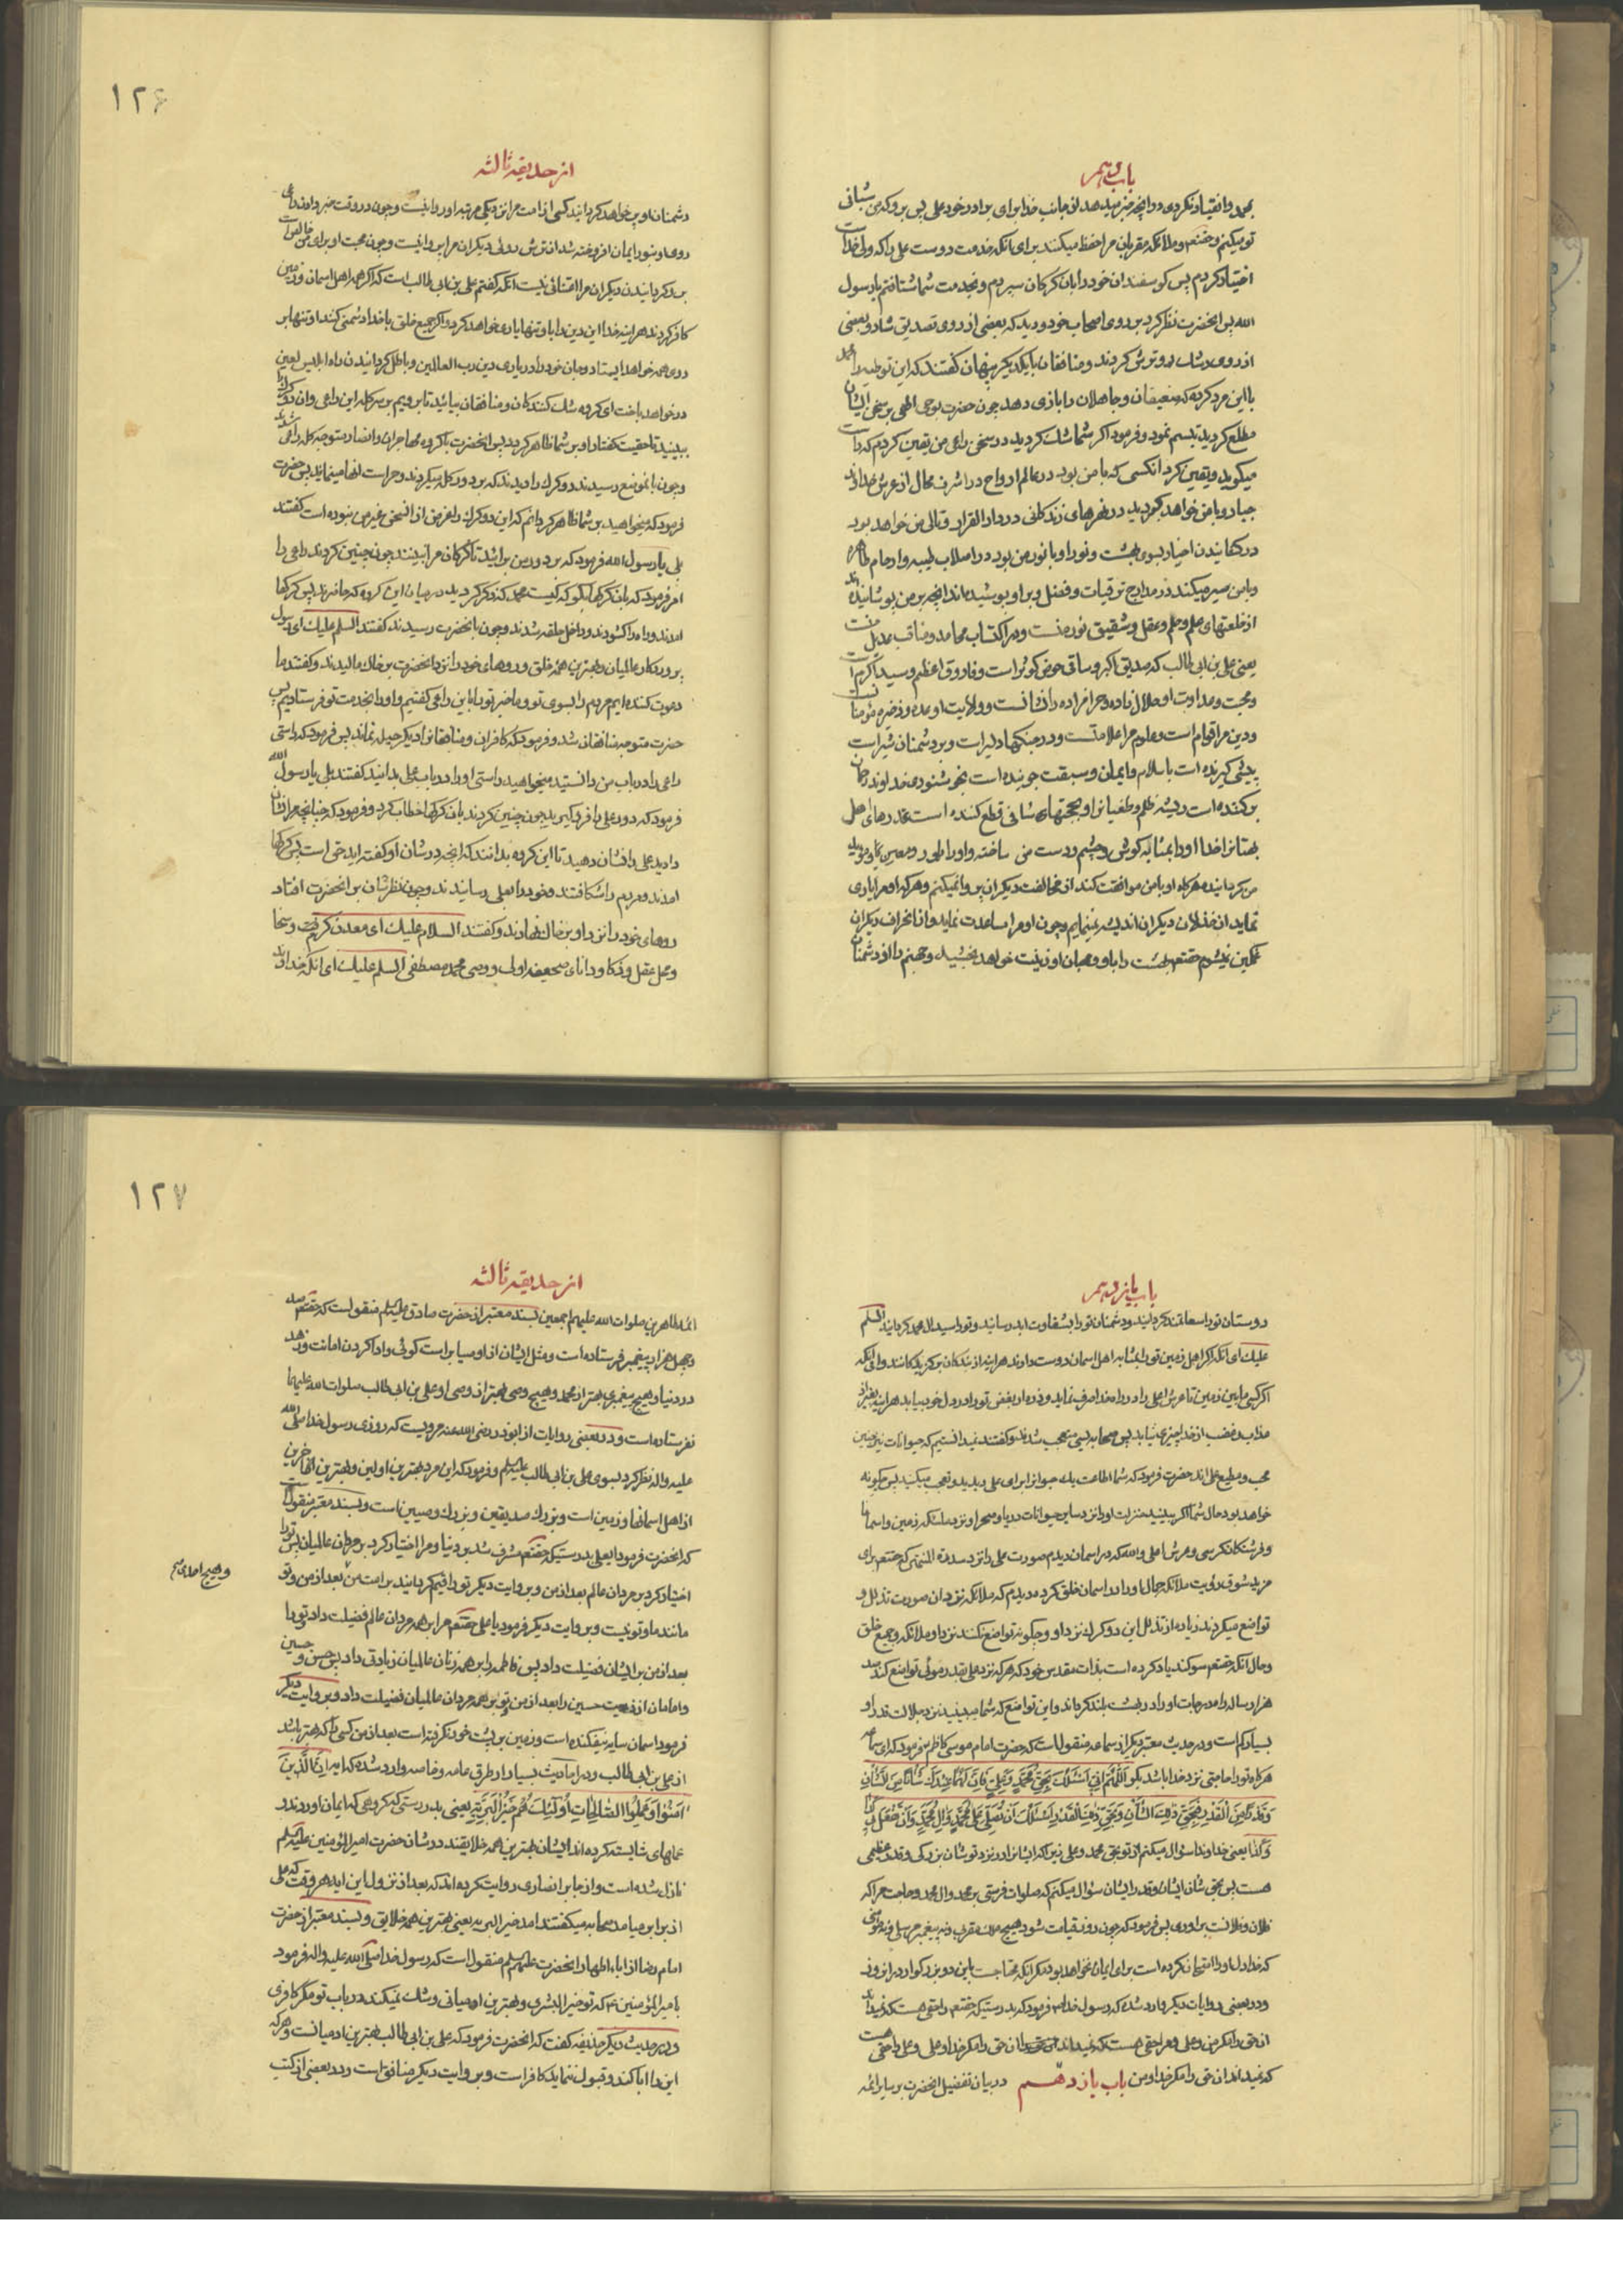 باب دهم
بمحمد و انقیاد نکردی در آنچه خبر میدهد از جانب خدا برای برادر خود علی پس برو که من شبانی
تو میکنم و حقتعالی و ملائکه مقربان مرا حفظ میکنند برای آنکه خدمت دوست علی را که ولی خداست
اختیار کردم پس گوسفندان خود را بآن گرگان سپردم و بخدمت شما شتافتم یا رسول
الله پس آنحضرت نظر کرد بر روی اصحاب خود و دید که بعضی از روی تصدیق شاد و بعضی
از روی شک رو ترش کردند و منافقان با یکدیگر پنهان گفتند که این توطئه را محمد
با این مرد کرده که ضعیفان و جاهلان را بازی دهد چون حضرت بوحی الهی بر سخن ایشان
مطلع گردید تبسم نمود و فرمود اگر شما شک کردید در سخن راعی من یقین کردم که راست
میگوید و یقین کرد آنکسی که با من بود در عالم ارواح در اشرف محال از عرش خداوند
جبار و با من خواهد گردید در نهرهای زندگانی در دار القرار و تالی من خواهد بود
در کشانیدن اخیار بسوی بهشت و نور او با نور من بود در اصلاب طیبه و ارحام طاهره
و با من سیر میکند در مدارج ترقیات و فضل و بر او پوشیده‌اند آنچه بر من پوشانیده‌اند
از خلعتهای علم و حلم و عقل و شقیق نور منست و در اکتساب محامد و مناقب عدیل منست
یعنی علی بن ابی طالب که صدیق اکبر و ساقی حوض کوثر است و فاروق اعظم و سید اکرم است
و محبت و عداوت او حلال زاده و حرامزاده را نشانست و ولایت او عده و ذخیره مؤمنانست
و دین مرا قوام است و علوم مرا علامتست و در جنگها دلیر است و بر دشمنان شیر است
پیشی گیرنده است باسلام و ایمان و سبقت جوینده است بخوشنودی خداوند رحمان
برکننده است ریشه ظلم و طغیان را و بحجتهای شافی قطع کننده است عذرهای اهل
بهتان را خدا او را بمثابه گوش و چشم و دست من ساخته و او را یاور و معین و مؤید
من گردانیده هرگاه او با من موافقت کند از مخالفت دیگران پروا نمیکنم و هرگه او مرا یاری
نماید از خذلان دیگران اندیشه نمینمایم و چون او مرا مساعدت نماید از انحراف دیگران
غمگین نمیشوم حقتعالی بهشت را باو و محبان او زینت خواهد بخشید و جهنم را از دشمنان
۱۲۶
از حدیقه ثالثه
دشمنان او پر خواهد کردانید کسی از امت مرا نزدیکی مرتبه او روا نیست و چون در وقت خبر دادن راعی
روی او بنور ایمان افروخته شد از ترش روئی دیگران مرا پروا نیست و چون محبت او برای من خالص است
برو گردانیدن دیگران مرا اعتنائی نیست آنکه گفتم علی بن ابی طالب است که اگر همه اهل آسمان و زمین
کافر گردند هر آینه خدا این دین را باو تنها یاری خواهد کرد و اگر جمیع خلق با خدا دشمنی کنند او تنها بر
روی همه خواهد ایستاد و جان خود را در یاری دین رب العالمین و باطل گردانیدن راه ابلیس لعین
در خواهد باخت ای گروه شک کنندگان و منافقان بیائید تا برویم بر سر گله این راعی و آن دو گرگ را
ببینید تا حقیت گفتار او بر شما ظاهر گردد پس آنحضرت با گروه مهاجران و انصار متوجه گله راعی شدند
و چون بآن موضع رسیدند دو گرگ را دیدند که بر دور گله میگردند و حراست آنها مینمایند پس حضرت
فرمود که میخواهید بر شما ظاهر گردانم که این دو گرگ را غرض از آن سخن بغیر من نبوده است گفتند
بلی یا رسول الله فرمود که بر دور من برآئید تا گرگان مرا نبینند چون چنین کردند راعی را
امر فرمود که بآن گرگها بگو که کیست محمد که ذکر کردید در میان این گروه که حاضرند پس گرگها
آمدند و راه گشودند و داخل حلقه شدند و چون بآنحضرت رسیدند گفتند السلم علیک ای رسول
پروردگار عالمیان و بهترین همه خلق و روهای خود را نزد آنحضرت بر خاک مالیدند و گفتند ما
دعوت کننده‌ایم مردم را بسوی تو و ما خبر تو را باین راعی گفتیم و او را بخدمت تو فرستادیم پس
حضرت متوجه منافقان شد و فرمود که کافران و منافقان را دیگر حیله نماند پس فرمود که راستی
راعی را در باب من دانستید میخواهید راستی او را در باب علی بدانید گفتند بلی یا رسول الله
فرمود که دور علی را فروگیرید چون چنین کردند بآن گرگها خطاب کرد و فرمود که چنانچه مرا نشان
دادید علی را نشان دهید تا این گروه بدانند که آنچه در شأن او گفته‌اید حق است پس گرگها
آمدند و مردم را شکافتند و خود را بعلی رسانیدند و چون نظرشان بر آنحضرت افتاد
روهای خود را نزد او بر خاک نهادند و گفتند السلام علیک ای معدن کرم و سخا
و محل عقل و ذکا و دانای صحیفه اولی و وصی محمد مصطفی السلم علیک ای آنکه خداوند
باب یازدهم
دوستان تو را سعادتمند گردانید و دشمنان تو را بشقاوت ابد رسانید و تو را سید آل محمد گردانید السلم
علیک ای آنکه اگر اهل زمین تو را بمثابه اهل آسمان دوست دارند هر آینه از نیکان برگزیدگانند و ای آنکه
اگر کسی ما بین زمین تا عرش اعلی را در راه خدا صرف نماید و ذره‌ای از بغض تو را در دل خود بیابد هر آینه بغیر از
عذاب و غضب از خدا چیزی نیابد پس صحابه بسی متعجب شدند و گفتند نمیدانستیم که حیوانات نیز چنین
محب و مطیع علی‌اند حضرت فرمود که شما اطاعت یک حیوان از برای علی دیدید و تعجب میکنید پس چگونه
خواهد بود حال شما اگر ببینید منزلت او را نزد سایر حیوانات دریا و صحرا و نزد ملائکه زمین و آسمانها
و فرشتگان کرسی و عرش اعلی والله که در آسمان دیدم صورت علی را نزد سدرة المنتهی که حقتعالی برای
مزید شوق رؤیت ملائکه جمال او را در آسمان خلق کرده دیدم که ملائکه نزد آن صورت تذلل و
تواضع میکردند زیاده از تذلل این دو گرگ نزد او و چگونه تواضع نکنند نزد او ملائکه و جمیع خلق
و حال آنکه حقتعالی سوگند یاد کرده است بذات مقدس خود که هر که نزد علی بقدر موئی تواضع کند صد
هزار ساله راه درجات او را در بهشت بلند گرداند و این تواضع که شما میبینید نزد جلالت قدر او
بسیار کم است و در حدیث معتبر دیگر از سماعه منقولست که حضرت امام موسی کاظم فرمود که ای سماعه
هرگاه تو را حاجتی نزد خدا باشد بگو اَللّٰهُمَّ اِنّی اَسْئَلُکَ بِحَقِّ مُحَمَّدٍ وَ عَلِیٍّ فَاِنَّ لَهُمٰا عِنْدَکَ شَأْنًا مِنَ الشَّأْنِ
وَ قَدْرًا مِنَ الْقَدْرِ فَبِحَقِّ ذٰلِکَ الشَّأْنِ وَ بِحَقِّ ذٰلِکَ الْقَدْرِ اَسْئَلُکَ اَنْ تُصَلِّیَ عَلٰی مُحَمَّدٍ وَ آلِ مُحَمَّدٍ وَ اَنْ تَفْعَلَ بی کَذٰا
وَ کَذٰا یعنی خداوندا سؤال میکنم از تو بحق محمد و علی زیرا که ایشان را نزد تو شأن بزرگی و قدر عظیمی
هست پس بحق شأن ایشان و قدر ایشان سؤال میکنم که صلوات فرستی بر محمد و آل محمد و حاجت مرا که
فلان و فلانست برآوری پس فرمود که چون روز قیامت شود هیچ ملک مقرب و نه پیغمبر مرسل و نه مؤمنی
که خدا دل او را امتحان کرده است برای ایمان نخواهد بود مگر آنکه محتاجست باین دو بزرگوار در آن روز
و در بعضی روایات دیگر وارد شده که رسول خدا ص فرمود که بدرستیکه حقتعالی را حقی هست که نمیداند
آن حق را مگر من و علی و مرا حقی هست که نمیداند آن حق را مگر خدا و علی و علی را حقی هست
که نمیداند آن حق را مگر خدا و من باب یازدهم در بیان تفضیل آنحضرت بر سایر ائمه
۱۲۷
از حدیقه ثالثه
ائمه طاهرین صلوات الله علیهم اجمعین بسند معتبر از حضرت صادق علیه السلم منقولست که حقتعالی صد
و چهل هزار پیغمبر فرستاده است و مثل ایشان از اوصیا براست گوئی و ادا کردن امانت و زهد
در دنیا و هیچ پیغمبری بهتر از محمد و هیچ وصی بهتر از وصی او علی بن ابی طالب صلوات الله علیهما
نفرستاده است و در بعضی روایات از ابوذر رضی الله عنه مرویست که روزی رسول خدا صلی الله
علیه و اله نظر کرد بسوی علی بن ابی طالب علیه السلم و فرمود که این مرد بهترین اولین و بهترین آخرین
از اهل آسمانها و زمین است و بزرگ صدیقین و بزرگ وصیین است و بسند معتبر منقولست
که آنحضرت فرمود یا علی بدرستیکه حقتعالی مشرف شد بر دنیا و مرا اختیار کرد بر مردان عالمیان پس تو را
اختیار کرد بر مردان عالم بعد از من و بروایت دیگر تو را قیم گردانید بر امت من بعد از من و تو
مانند ما و تو نیست و بروایت دیگر فرمود یا علی حقتعالی مرا بر همه مردان عالم فضیلت داد تو را
بعد از من بر ایشان فضیلت داد پس فاطمه را بر همه زنان عالمیان زیادتی داد پس حسن و حسین
و امامان از ذریت حسین را بعد از من و تو بر همه مردان عالمیان فضیلت داد و بروایت دیگر
فرمود آسمان سایه نیفکنده است و زمین بر پشت خود نگرفته است بعد از من کسی را که بهتر باشد
از علی بن ابی طالب و در احادیث بسیار از طرق عامه و خاصه وارد شده که آیه اِنَّ الَّذینَ
اٰمَنُوا وَ عَمِلُوا الصّٰالِحٰاتِ اُولٰئِکَ هُمْ خَیْرُ الْبَرِیَّةِ یعنی بدرستی که گروهی که ایمان آوردند و
عملهای شایسته کرده‌اند ایشان بهترین همه خلایقند در شأن حضرت امیر المؤمنین علیه السلم
نازل شده است و از جابر انصاری روایت کرده‌اند که بعد از نزول این آیه هر وقت که علی
از برابر میآمد صحابه میگفتند آمد خیر البریه یعنی بهترین همه خلایق و بسند معتبر از حضرت
امام رضا از آباء اطهار آنحضرت علیهم السلم منقولست که رسول خدا صلی الله علیه و اله فرمود
بامیر المؤمنین ع که تو خیر البشری و بهترین آدمیانی و شک نمیکند در باب تو مگر کافری
و در حدیث دیگر حذیفه گفت که آنحضرت فرمود که علی بن ابی طالب بهترین آدمیانست و هر که
این را ابا کند و قبول ننماید کافر است و بروایت دیگر منافق است و در بعضی از کتب